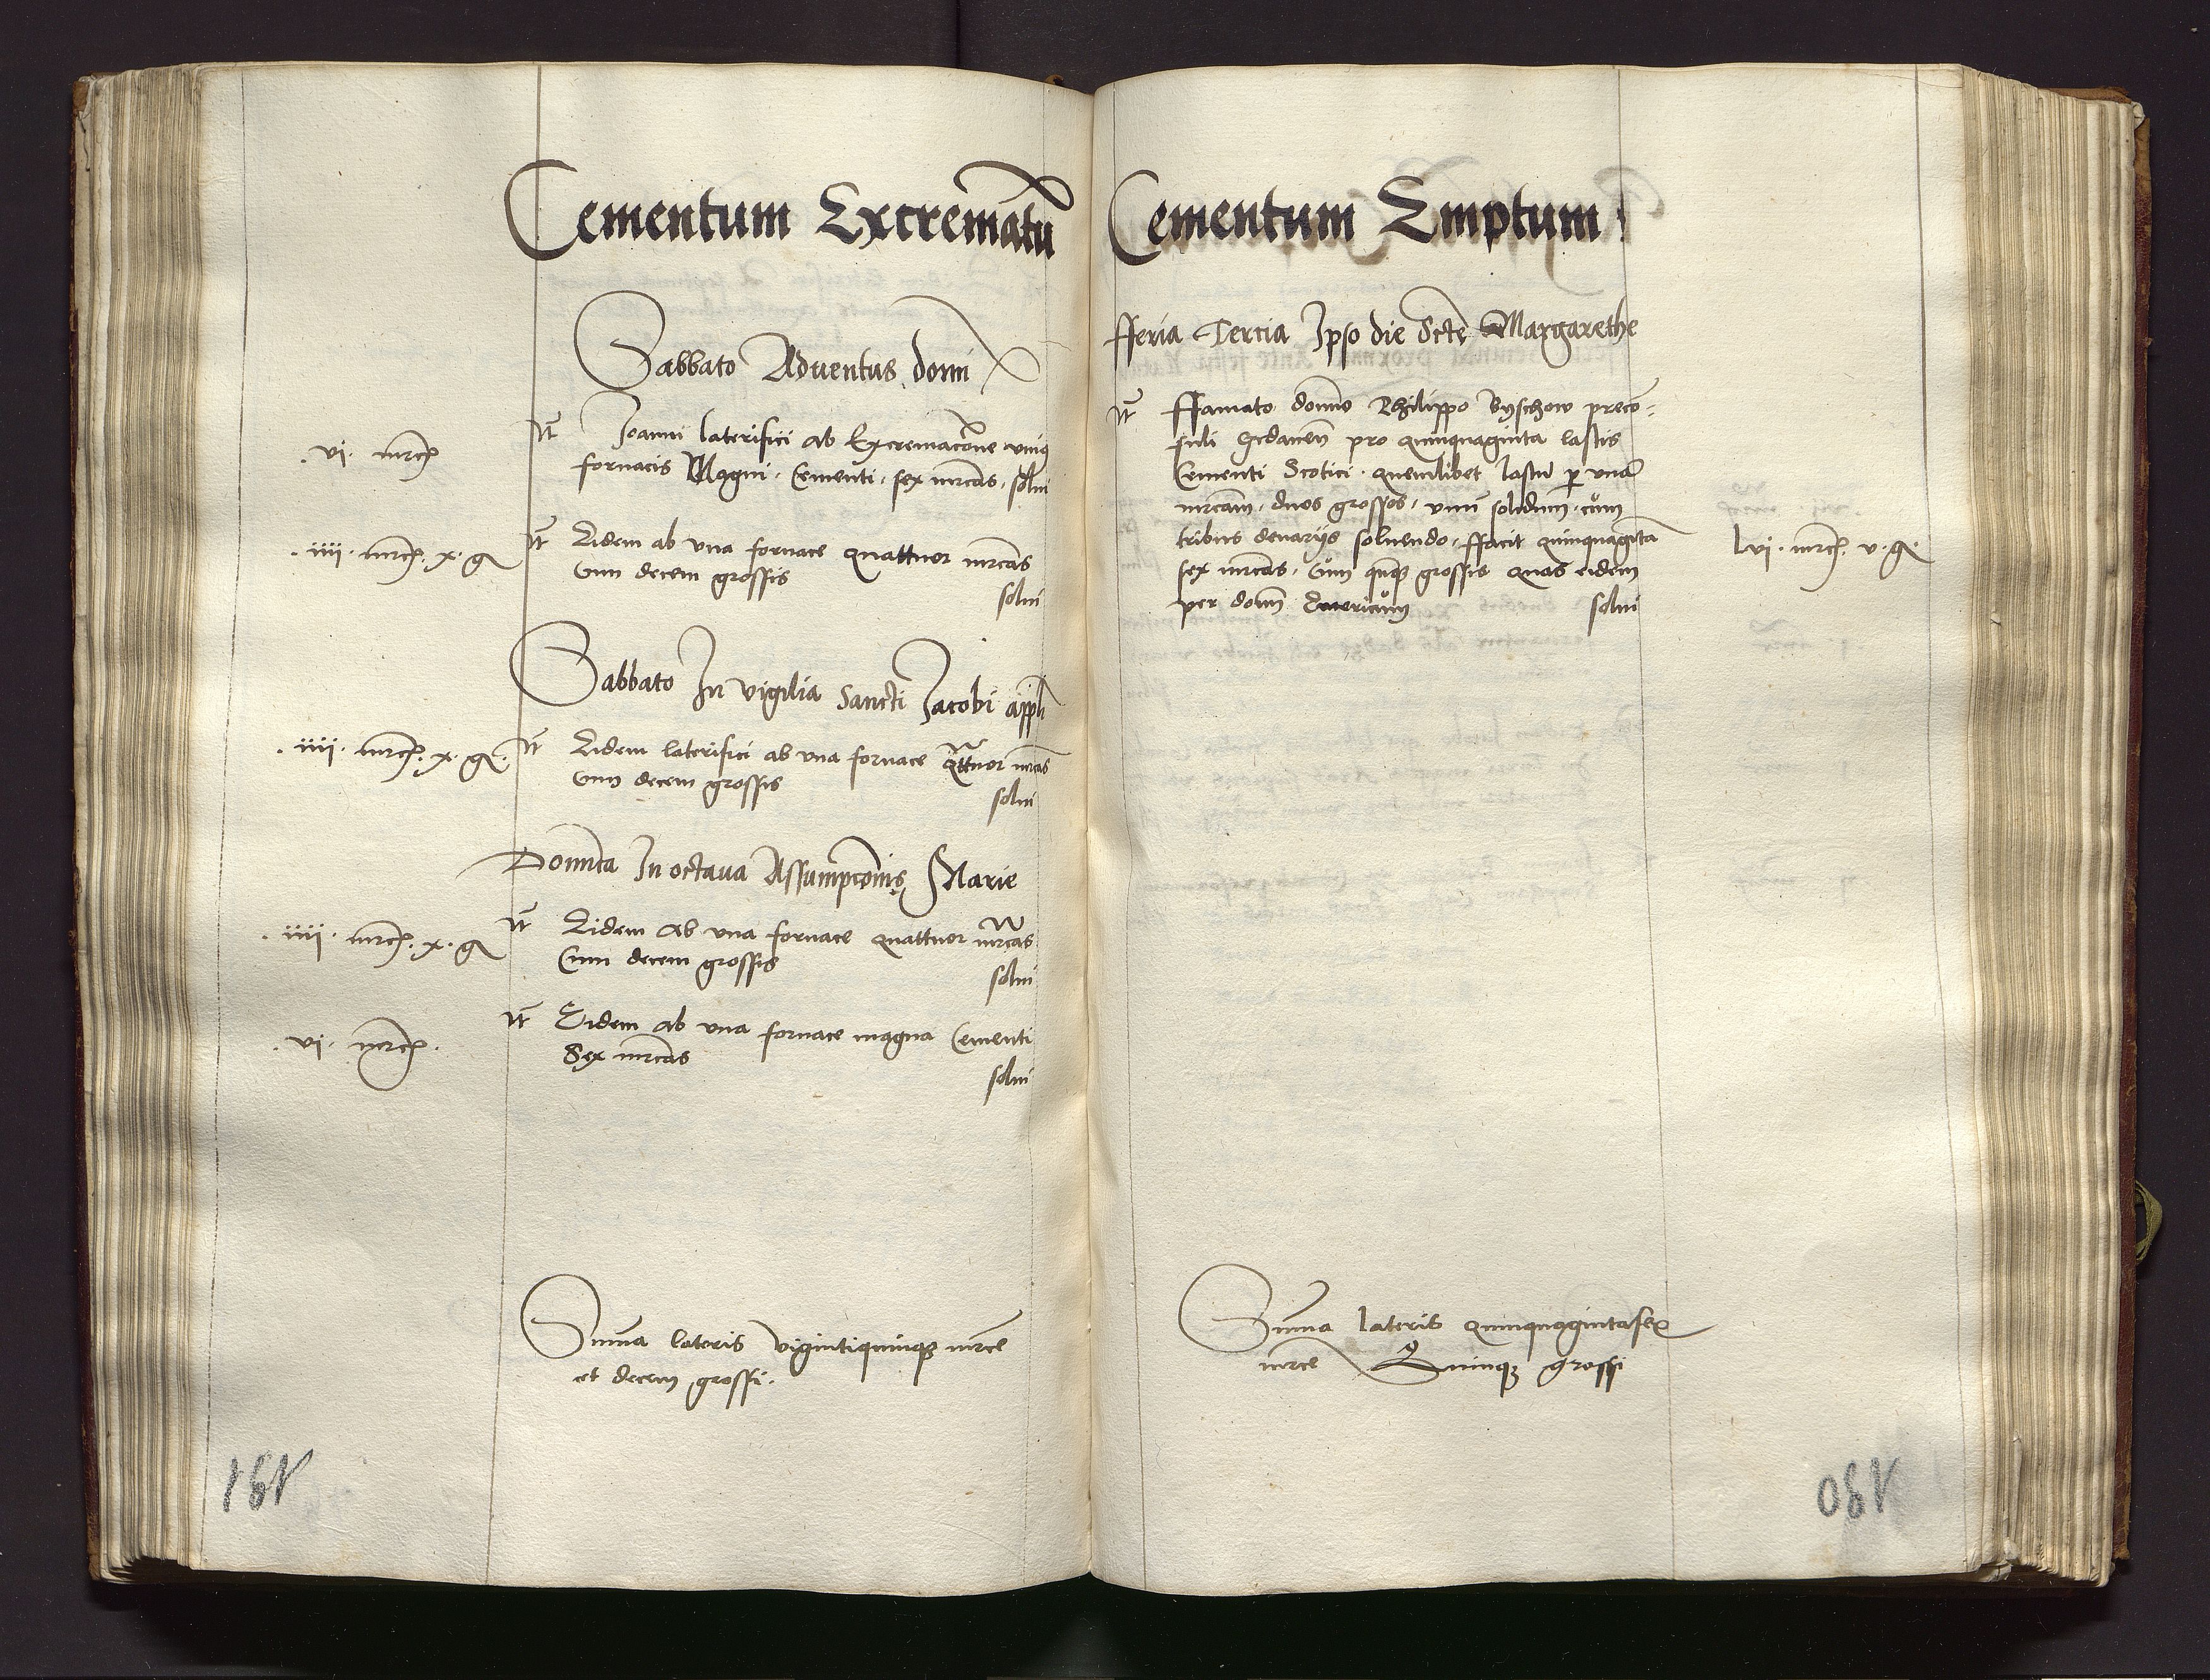 Cementum Excrematū
Sabbato Aduentus domī
vi. mrcȝ
Jtē Joanni laterifici ab Excremacōne vniꝰ
fornacis Magni Cementi, sex mrcās, solui
iiii. mrcȝ. x. gͬ
Jtē Eidem ab vna fornace quattuor mrcās
Cum decem grossis
solui
Sabbato In vigilia Sancti Jacobi appli
iiii. mrcȝ. x. gͬ
Jtē Eidem laterifici ab vna fornace qᵃttuor mrcās
Cum decem grossis
solui
Domīca In octaua Assumpcōnis Marie
iiii. mrcȝ. x. gͬ
Jtē Eidem ab vna fornace quattuor mrcas
Cum decem grossis
solui
vi. mrcȝ.
Jtē Eidem ab vna fornace magna Cementi
Sex mrcās
solui
Sum̄a lateris Vigintiquinqꝫ mrce
et decem grossi.
191
Cementum Emptum
Fferia Tercia Jpso die Scte Margarethe
Jtē Ffamato domno Philippo Byschow preco-
suli Gedanen̄ pro quinquaginta lastis
Cementi Scotici quemlibet lastū ꝑ vnā
mrcam, duos grossos, vnū solidum, cum
tribus denariis soluendo, Ffacit quinquagīta
sex mrcas, Cum quīqꝫ grossis quas eidem
per domn̄ solui
Lvi. mrcȝ. v. gͬ.
Sum̄a lateris quinquagintasex
mrce Quinqꝫ grossi
190